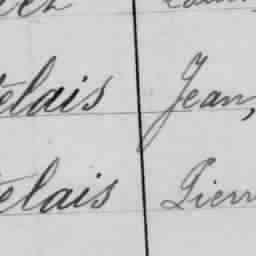 elais Jean,
elais Pierr